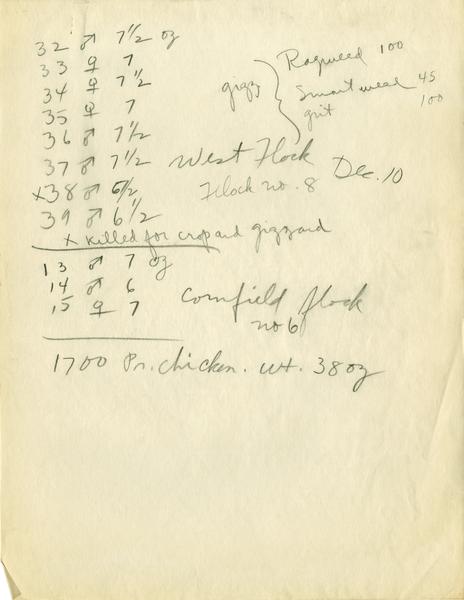 32 ♂ 7 1/2 oz
33 ♀ 7
34 ♀ 7 1/2
35 ♀ 7
36 ♂ 7 1/2
37 ♂ 7 1/2
x38 ♂ 6 1/2
39 ♂ 6 1/2
x killed for crop and gizzard
gizz } Ragweed 100
Smartweed 45
grit 100
West Flock Dec. 10
Flock no. 8
13 ♂ 7 oz
14 ♂ 6
15 ♀ 7
Cornfield flock
no 6
1700 Pr. chicken. wt. 38 oz